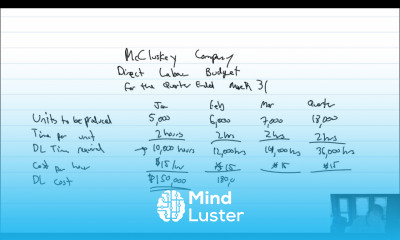 McCluskey Company
Direct Labour Budget
For the Quarter Ended March 31
Jan Feb Mar Quarter
Units to be produced 5,000 6,000 7,000 18,000
Time per unit 2 hours 2 hrs 2 hrs 2 hrs
DL Time required → 10,000 hours 12,000 hrs 14,000 hrs 36,000 hrs
Cost per hour $15/hr $15 $15 $15
DL Cost $150,000 180,0
Mind
Luster